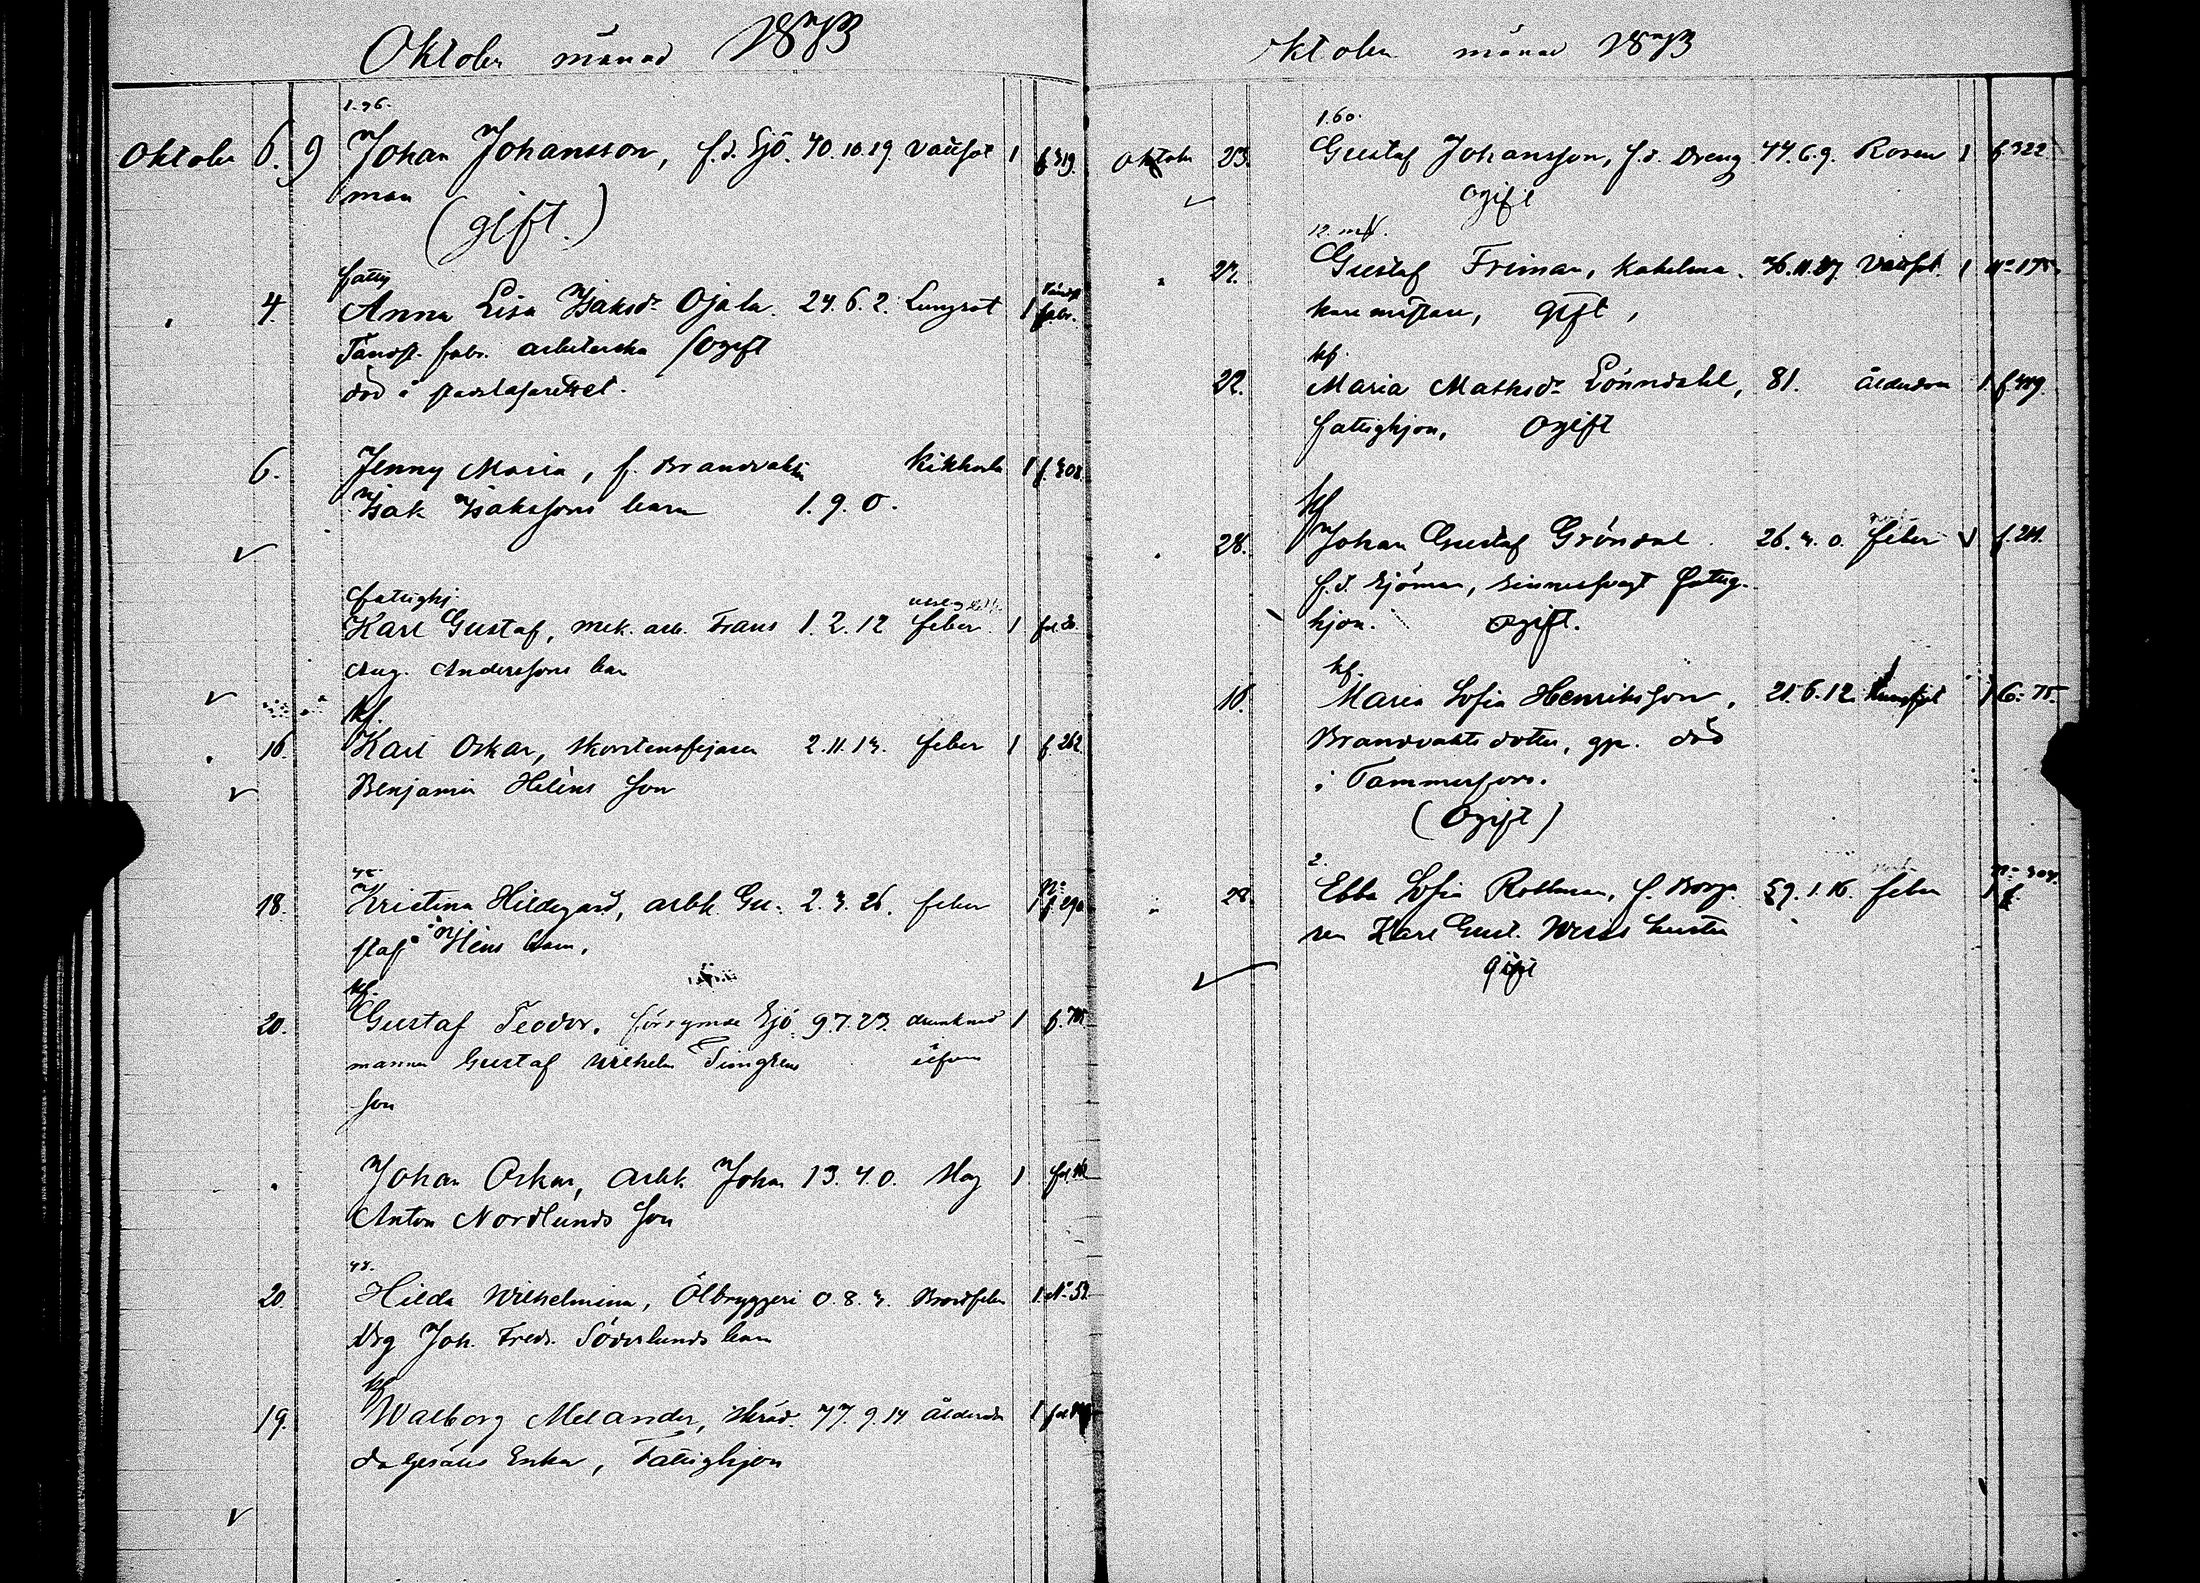 Oktober månad 1873
1.96.
Oktober 6. 9 Johan Johansson, f.d. Sjö. 70.10.19 Vattsot 1 f. 319.
man
(gift.)
fattig
4. Anna Lisa Isaksdr Ojala. 24.6.2. Lungsot 1 fabr.
Tändst. fabr. arbeterska /Ogift
död å stadslasarettet.
6. Jenny Maria, f. Brandvakt Kikhosta 1 f. 308
Isak Isakssons barn 1.9.0.
fattighj.
Karl Gustaf, mek. arb. Frans 1.2.12 feber 1
Aug. Anderssons barn
kf.
16. Karl Oskar, skorstensfejaren 2.11.13. feber 1 f. 262.
Benjamin Heléns son
45.
18. Kristina Hildegard, arbk. Gu- 2.3.26. feber 1 f. 290
staf barn.
kf.
20. Gustaf Teodor, försvunne Sjö- 9.7.23. drunknad 1 f. 705
mannen Gustaf Wilhelm
son
Johan Oskar, arbk. Johan 13.4.0. Slag 1
Anton Nordlunds son
48.
20. Hilda Wilhelmina, Ölbryggeri 0.8.3. Brostfeber 1 No 52
drg Joh. Fredr. Söderlunds barn
kf
19. Walborg Melander, skräd- 77.9.14 Ålderdom 1
da gesälls Enka, Fattighjon
Oktober månad 1873
1.60.
Oktober 23. Gustaf Johansson, f.d. Dreng 44.6.9. Rosen 1 f. 322.
ogift
12. mk.
27. Gustaf Friman, Kakelma- 76.11.27 Vattsot. 1 No 175
kare mästare, Gift,
kf.
22. Maria Mathsdr Lönndahl, 81. Ålderdom 1 f. 419.
fattighjon, Ogift
kf
28. Johan Gustaf Gröndal 26.3.0. feber 1 f. 211.
f.d. Sjöman, sinnessvagt fattig-
hjon. Ogift.
kf.
16. Maria Sofia Henriksson, 21.6.12 Lungsot 1 6.75.
Brandvakts dotter, gp. död
i Tammerfors.
(Ogift)
2.
28. Ebba Sofia Rothman, f. Borga- 59.1.16. feber 1 No 304.
ren Karl Gust. hustru
Gift